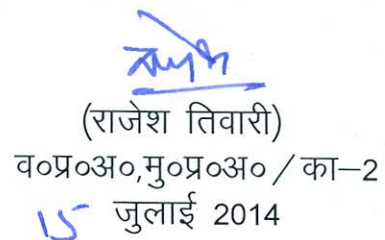 (राजेश तिवारी)
व०प्र०अ०,मु०प्र०अ० / का–2
15 जुलाई 2014